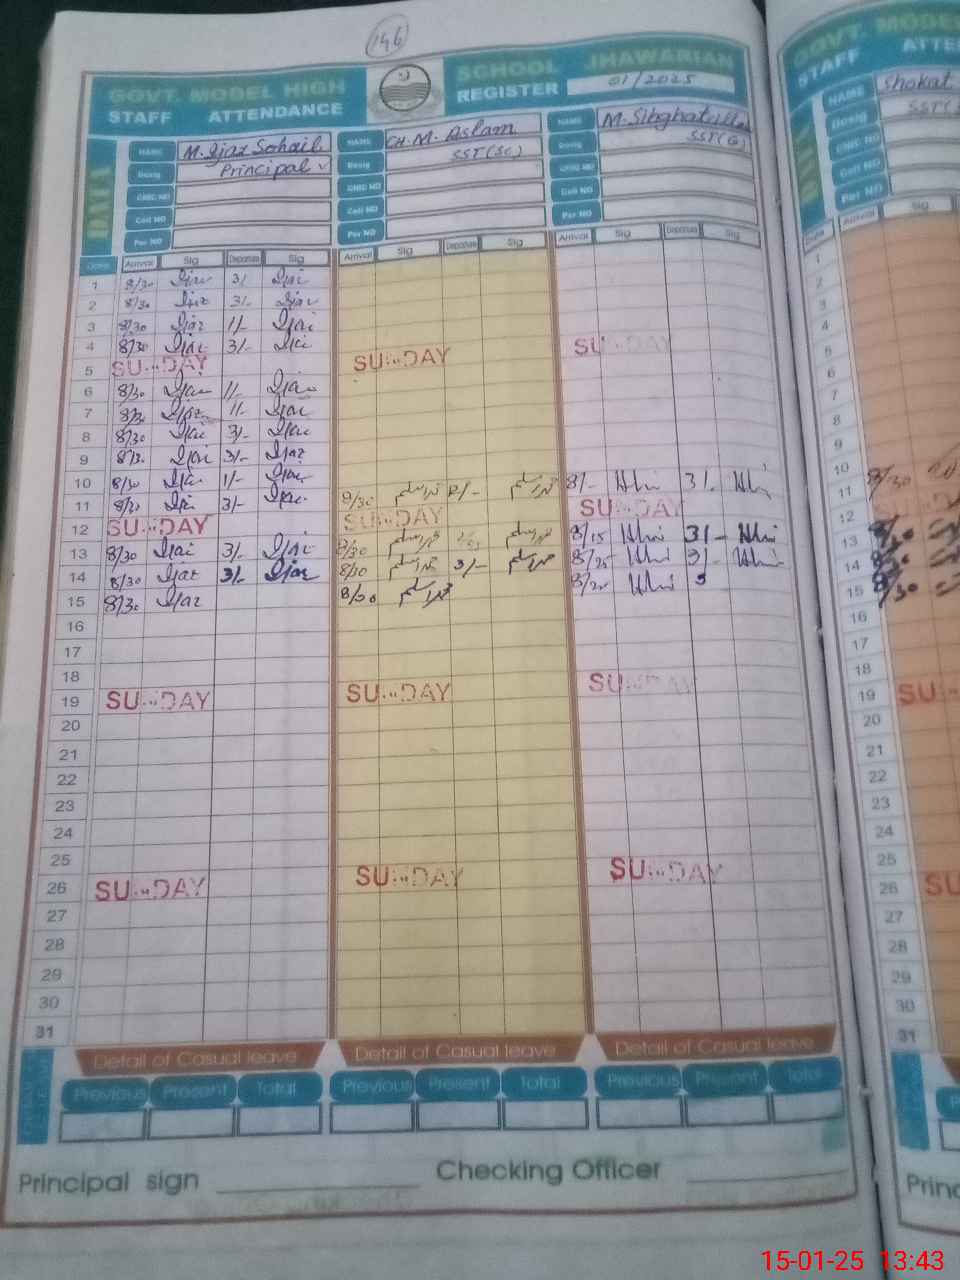 146
GOVT. MODEL HIGH SCHOOL JHAWARIAN
STAFF ATTENDANCE REGISTER 01/2025
DATA
NAME M. Ijaz Sohail
Desig Principal
CNIC NO
Cell NO
Per NO
NAME CH. M. Aslam
Desig SST(SC)
CNIC NO
Cell NO
Per NO
NAME M. Sibghatullah
Desig SST(G)
CNIC NO
Cell NO
Per NO
Date Arrival Sig Departure Sig Arrival Sig Departure Sig Arrival Sig Departure Sig
1 8/30 Ijaz 3/- Ijaz
2 8/30 Ijaz 3/- Ijaz
3 8/30 Ijaz 1/- Ijaz
4 8/30 Ijaz 3/- Ijaz
5 SUNDAY SUNDAY SUNDAY
6 8/30 Ijaz 1/- Ijaz
7 8/30 Ijaz 1/- Ijaz
8 8/30 Ijaz 3/- Ijaz
9 8/30 Ijaz 3/- Ijaz
10 8/30 Ijaz 1/- Ijaz
11 8/30 Ijaz 3/- Ijaz 8/30 محمد اسلم محمد اسلم 8/- 3/-
12 SUNDAY SUNDAY SUNDAY
13 8/30 Ijaz 3/- Ijaz 8/30 محمد اسلم محمد اسلم 8/15 3/-
14 8/30 Ijaz 3/- Ijaz 8/30 محمد اسلم 3/- محمد اسلم 8/25 3/-
15 8/30 Ijaz 8/30 محمد اسلم 8/20 3
16
17
18
19 SUNDAY SUNDAY SUNDAY
20
21
22
23
24
25
26 SUNDAY SUNDAY SUNDAY
27
28
29
30
31
Detail of Casual leave Detail of Casual leave Detail of Casual leave
Previous Present Total Previous Present Total Previous Present Total
Principal sign Checking Officer
GOVT. MODEL
STAFF ATTE
NAME Shokat
Desig SST(
CNIC NO
Cell NO
Per NO
Date Arrival Sig
1
2
3
4
5
6
7
8
9
10
11 8/30
12
13 8/30
14 8/30
15 8/30
16
17
18
19 SU
20
21
22
23
24
25
26 SU
27
28
29
30
31
Princ
15-01-25 13:43